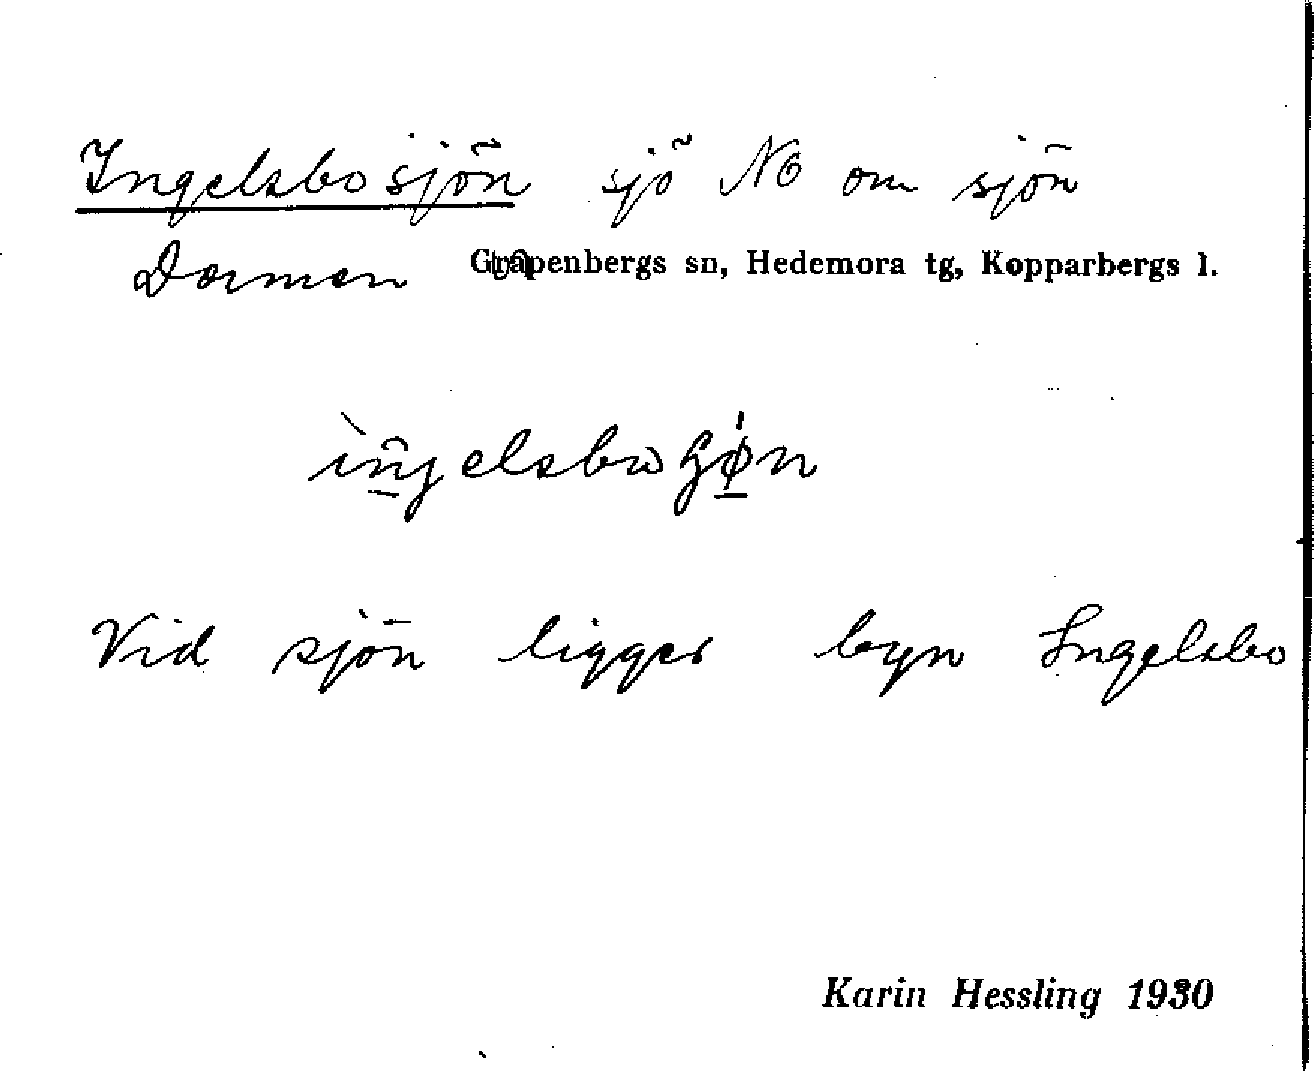 Ingelsbosjön sjö NO om sjön
Dormen Grapenbergs sn, Hedemora tg, Kopparbergs l.
Vid sjön ligger byn Ingelsbo
Karin Hessling 1930